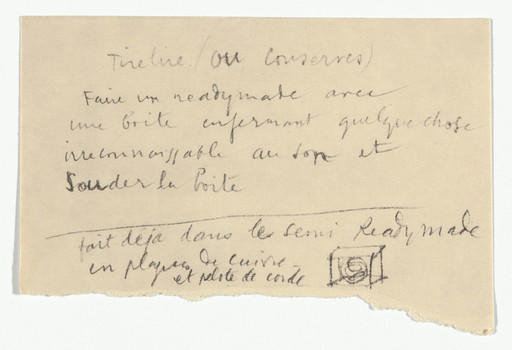 Tirelire (ou Conserves)
Faire un readymade avec
une boîte enfermant quelque chose
irreconnaissable au son et
souder la boîte
fait déja dans le semi Readymade
en plaques de cuivre
et pelote de corde